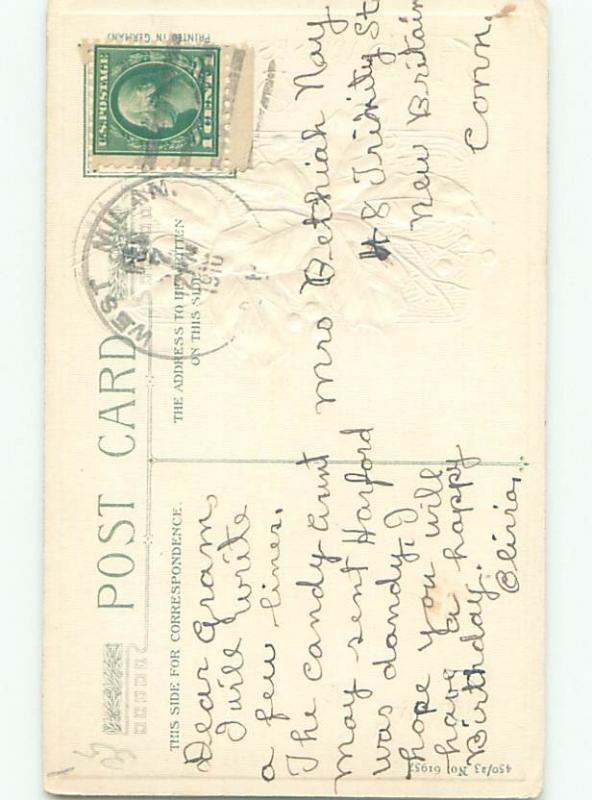 POST CARD
THIS SIDE FOR CORRESPONDENCE.
THE ADDRESS TO BE WRITTEN
ON THIS SIDE
PRINTED IN GERMANY
U.S. POSTAGE
1 CENT 1
WEST MILAN.
7
1910
Dear Gram,
I will write
a few lines.
The candy Aunt
May sent Harford
was dandy. I
hope you will
have a happy
Birthday.
Olivia,
Mrs Bethiah Nay
48 Trinity St
New Britain
Conn.
450/23 No. 61957